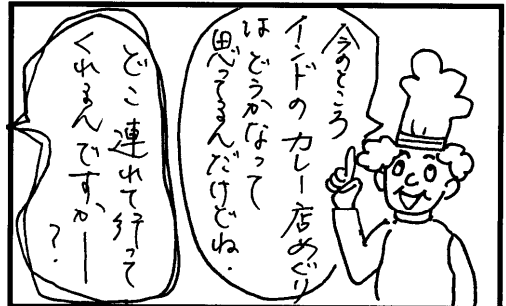 今のところ
インドのカレー店めぐり
はどうかなって
思ってるんだけどね.
どこ連れて行って
くれるんですかー
?